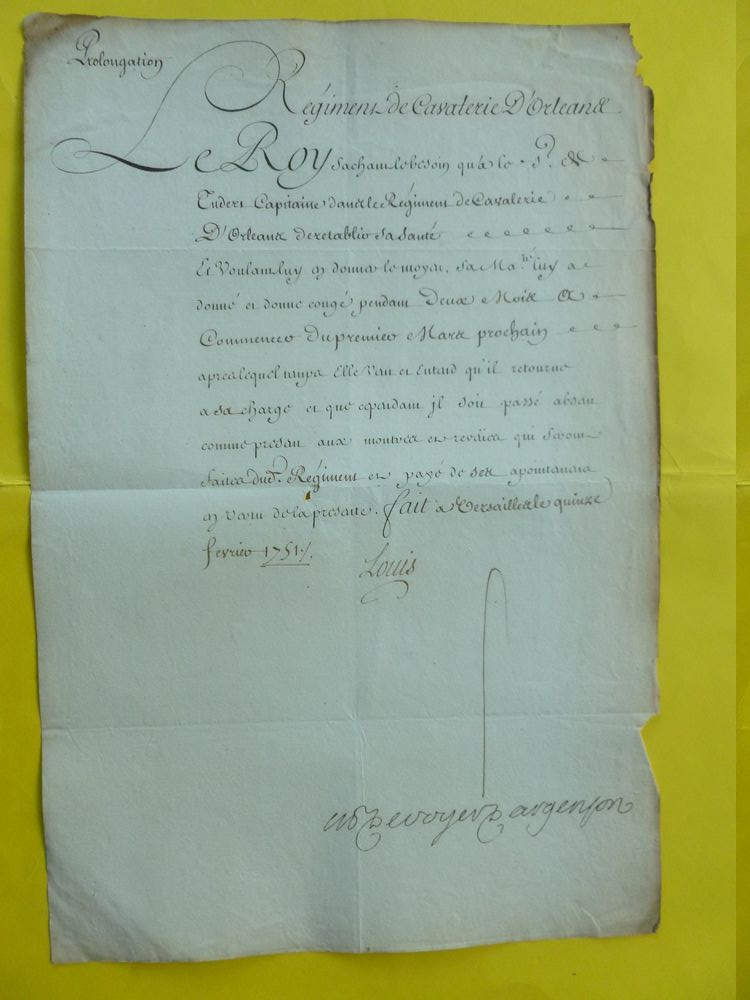 Prolongation
Régiment de Cavalerie D'Orleans
Le Roy Sachant le besoin qu'a le Sr. de
Tudert Capitaine dans le Régiment de Cavalerie
D'Orleans de retablir sa santé
Et Voulant luy en donner le moyen, Sa Ma.té luy a
donné et donne congé pendant Deux Mois A
Commencer du premier Mars prochain
apres lequel tamps Elle Veut et Entend qu'il retourne
a sa charge et que cependant jl soit passé absant
comme presant aux montres et reveües qui seront
faites dud.t Régiment et payé de ses apointemens
en vertu de la presente. fait a Versailles le quinze
fevrier 1751./.
Louis
De voyer D argenson